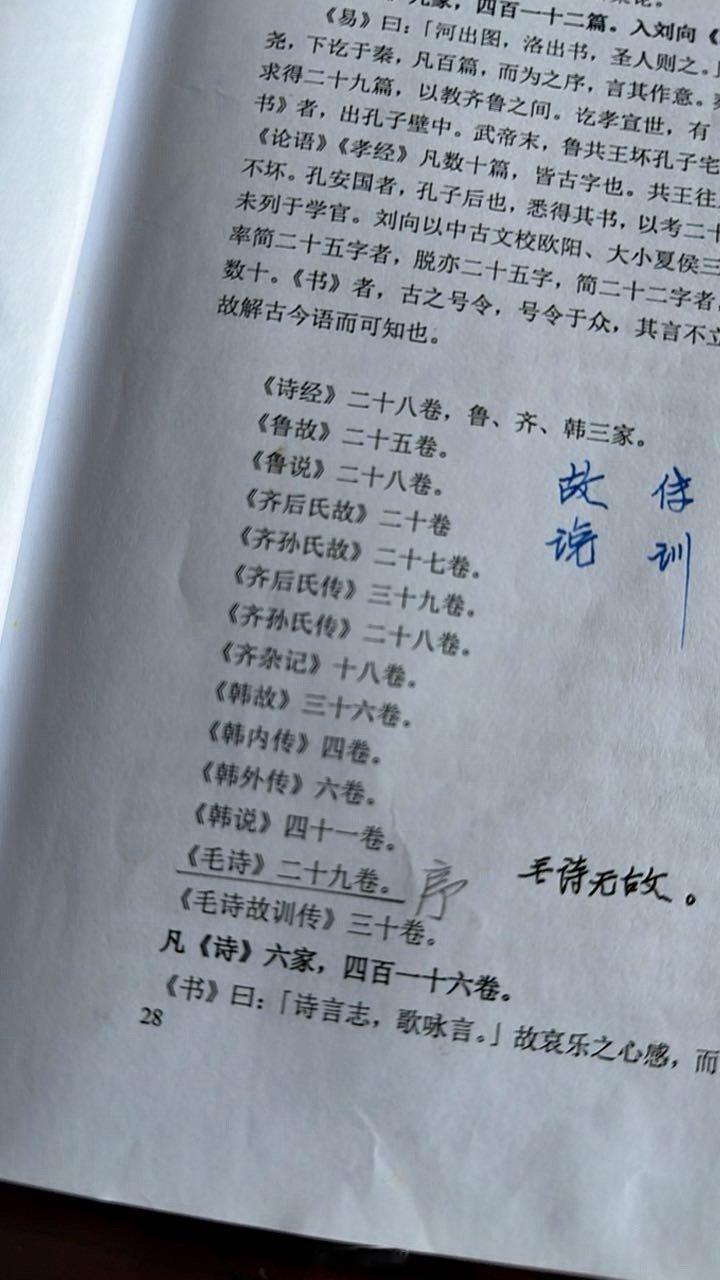 九家，四百一十二篇。入刘向《
《易》曰：「河出图，洛出书，圣人则之。」
尧，下讫于秦，凡百篇，而为之序，言其作意。
求得二十九篇，以教齐鲁之间。讫孝宣世，有
书》者，出孔子壁中。武帝末，鲁共王坏孔子宅
《论语》《孝经》凡数十篇，皆古字也。共王往
不坏。孔安国者，孔子后也，悉得其书，以考二十
未列于学官。刘向以中古文校欧阳、大小夏侯三
率简二十五字者，脱亦二十五字，简二十二字者
数十。《书》者，古之号令，号令于众，其言不立
故解古今语而可知也。
《诗经》二十八卷，鲁、齐、韩三家。
《鲁故》二十五卷。
《鲁说》二十八卷。
《齐后氏故》二十卷
《齐孙氏故》二十七卷。
《齐后氏传》三十九卷。
《齐孙氏传》二十八卷。
《齐杂记》十八卷。
《韩故》三十六卷。
《韩内传》四卷。
《韩外传》六卷。
《韩说》四十一卷。
《毛诗》二十九卷。 序
《毛诗故训传》三十卷。
凡《诗》六家，四百一十六卷。
《书》曰：「诗言志，歌咏言。」故哀乐之心感，而
28
故 传
说 训
毛诗无故。